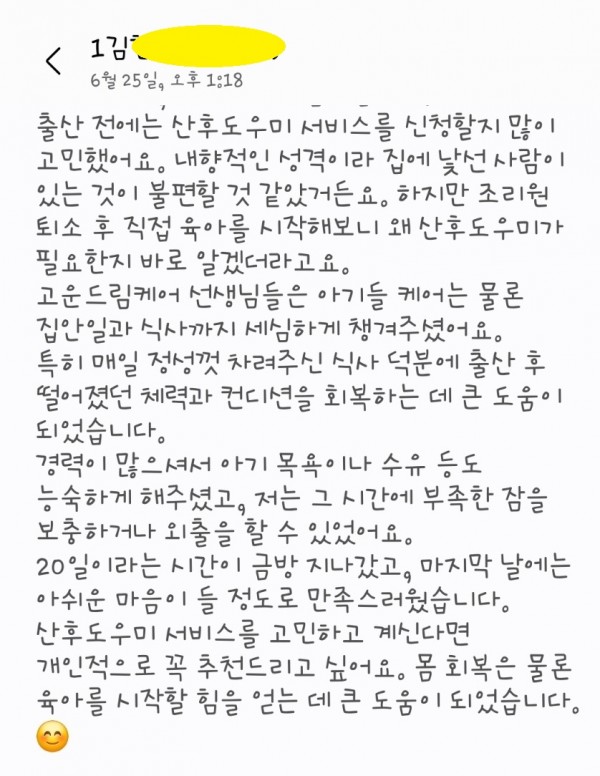 1김
6월 25일, 오후 1:18
출산 전에는 산후도우미 서비스를 신청할지 많이
고민했어요. 내향적인 성격이라 집에 낯선 사람이
있는 것이 불편할 것 같았거든요. 하지만 조리원
퇴소 후 직접 육아를 시작해보니 왜 산후도우미가
필요한지 바로 알겠더라고요.
고운드림케어 선생님들은 아기들 케어는 물론
집안일과 식사까지 세심하게 챙겨주셨어요.
특히 매일 정성껏 차려주신 식사 덕분에 출산 후
떨어졌던 체력과 컨디션을 회복하는 데 큰 도움이
되었습니다.
경력이 많으셔서 아기 목욕이나 수유 등도
능숙하게 해주셨고, 저는 그 시간에 부족한 잠을
보충하거나 외출을 할 수 있었어요.
20일이라는 시간이 금방 지나갔고, 마지막 날에는
아쉬운 마음이 들 정도로 만족스러웠습니다.
산후도우미 서비스를 고민하고 계신다면
개인적으로 꼭 추천드리고 싶어요. 몸 회복은 물론
육아를 시작할 힘을 얻는 데 큰 도움이 되었습니다.
😊